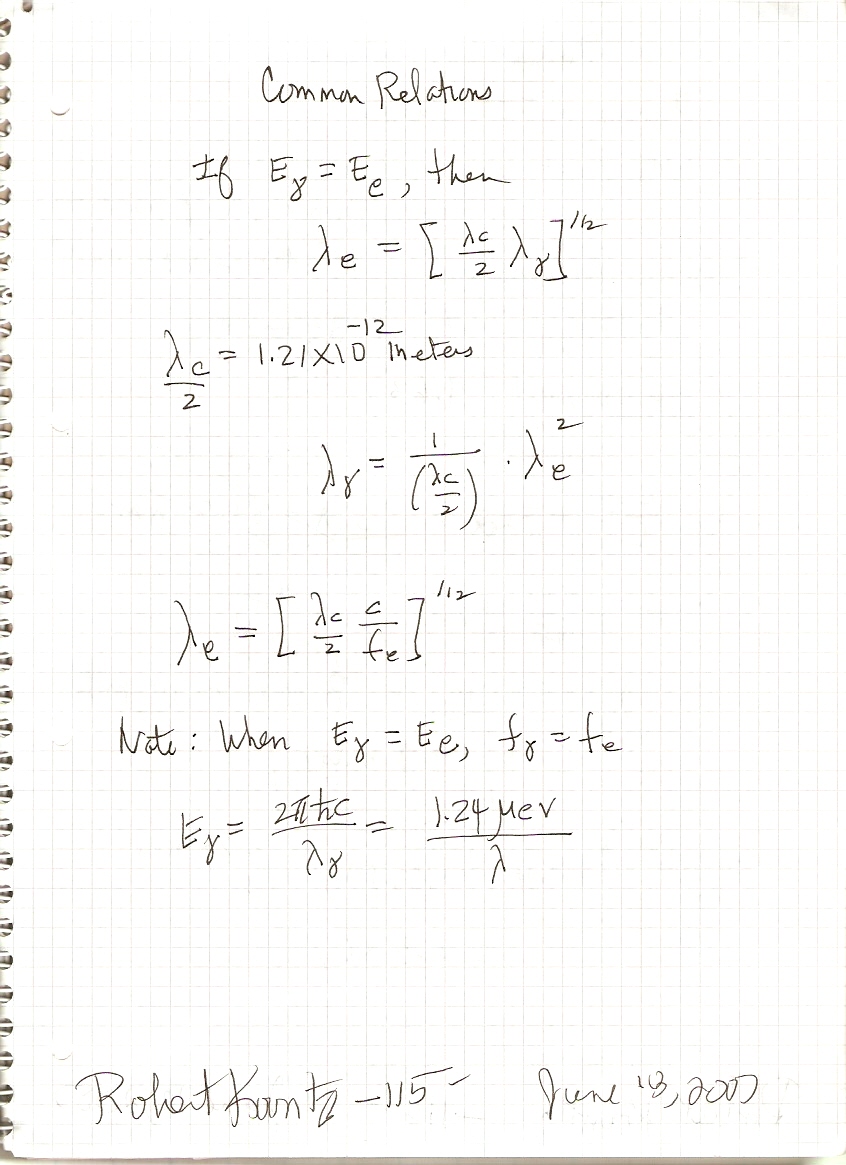 Common Relations
If Eγ = Ee, then
λe = [λc/2 λγ]^1/2
λc/2 = 1.21×10^-12 meters
λγ = 1/(λc/2) · λe^2
λe = [λc/2 c/fe]^1/2
Note: When Eγ = Ee, fγ = fe
Eγ = 2πħc/λγ = 1.24 μev/λ
Robert -115- June